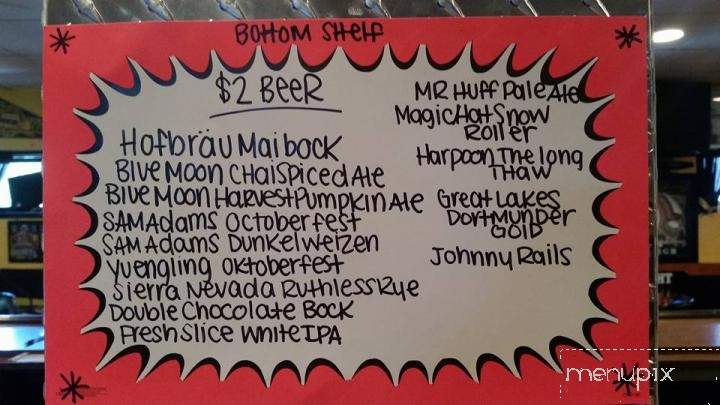 Bottom Shelf
$2 Beer
Hofbräu Maibock
Blue Moon Chai Spiced Ale
Blue Moon Harvest Pumpkin Ale
Sam Adams Octoberfest
Sam Adams Dunkelweizen
Yuengling Oktoberfest
Sierra Nevada Ruthless Rye
Double Chocolate Bock
Fresh Slice White IPA
Mr Huff Pale Ale
Magic Hat Snow
Roller
Harpoon The long
Thaw
Great Lakes
Dortmunder
Gold
Johnny Rails
menupix